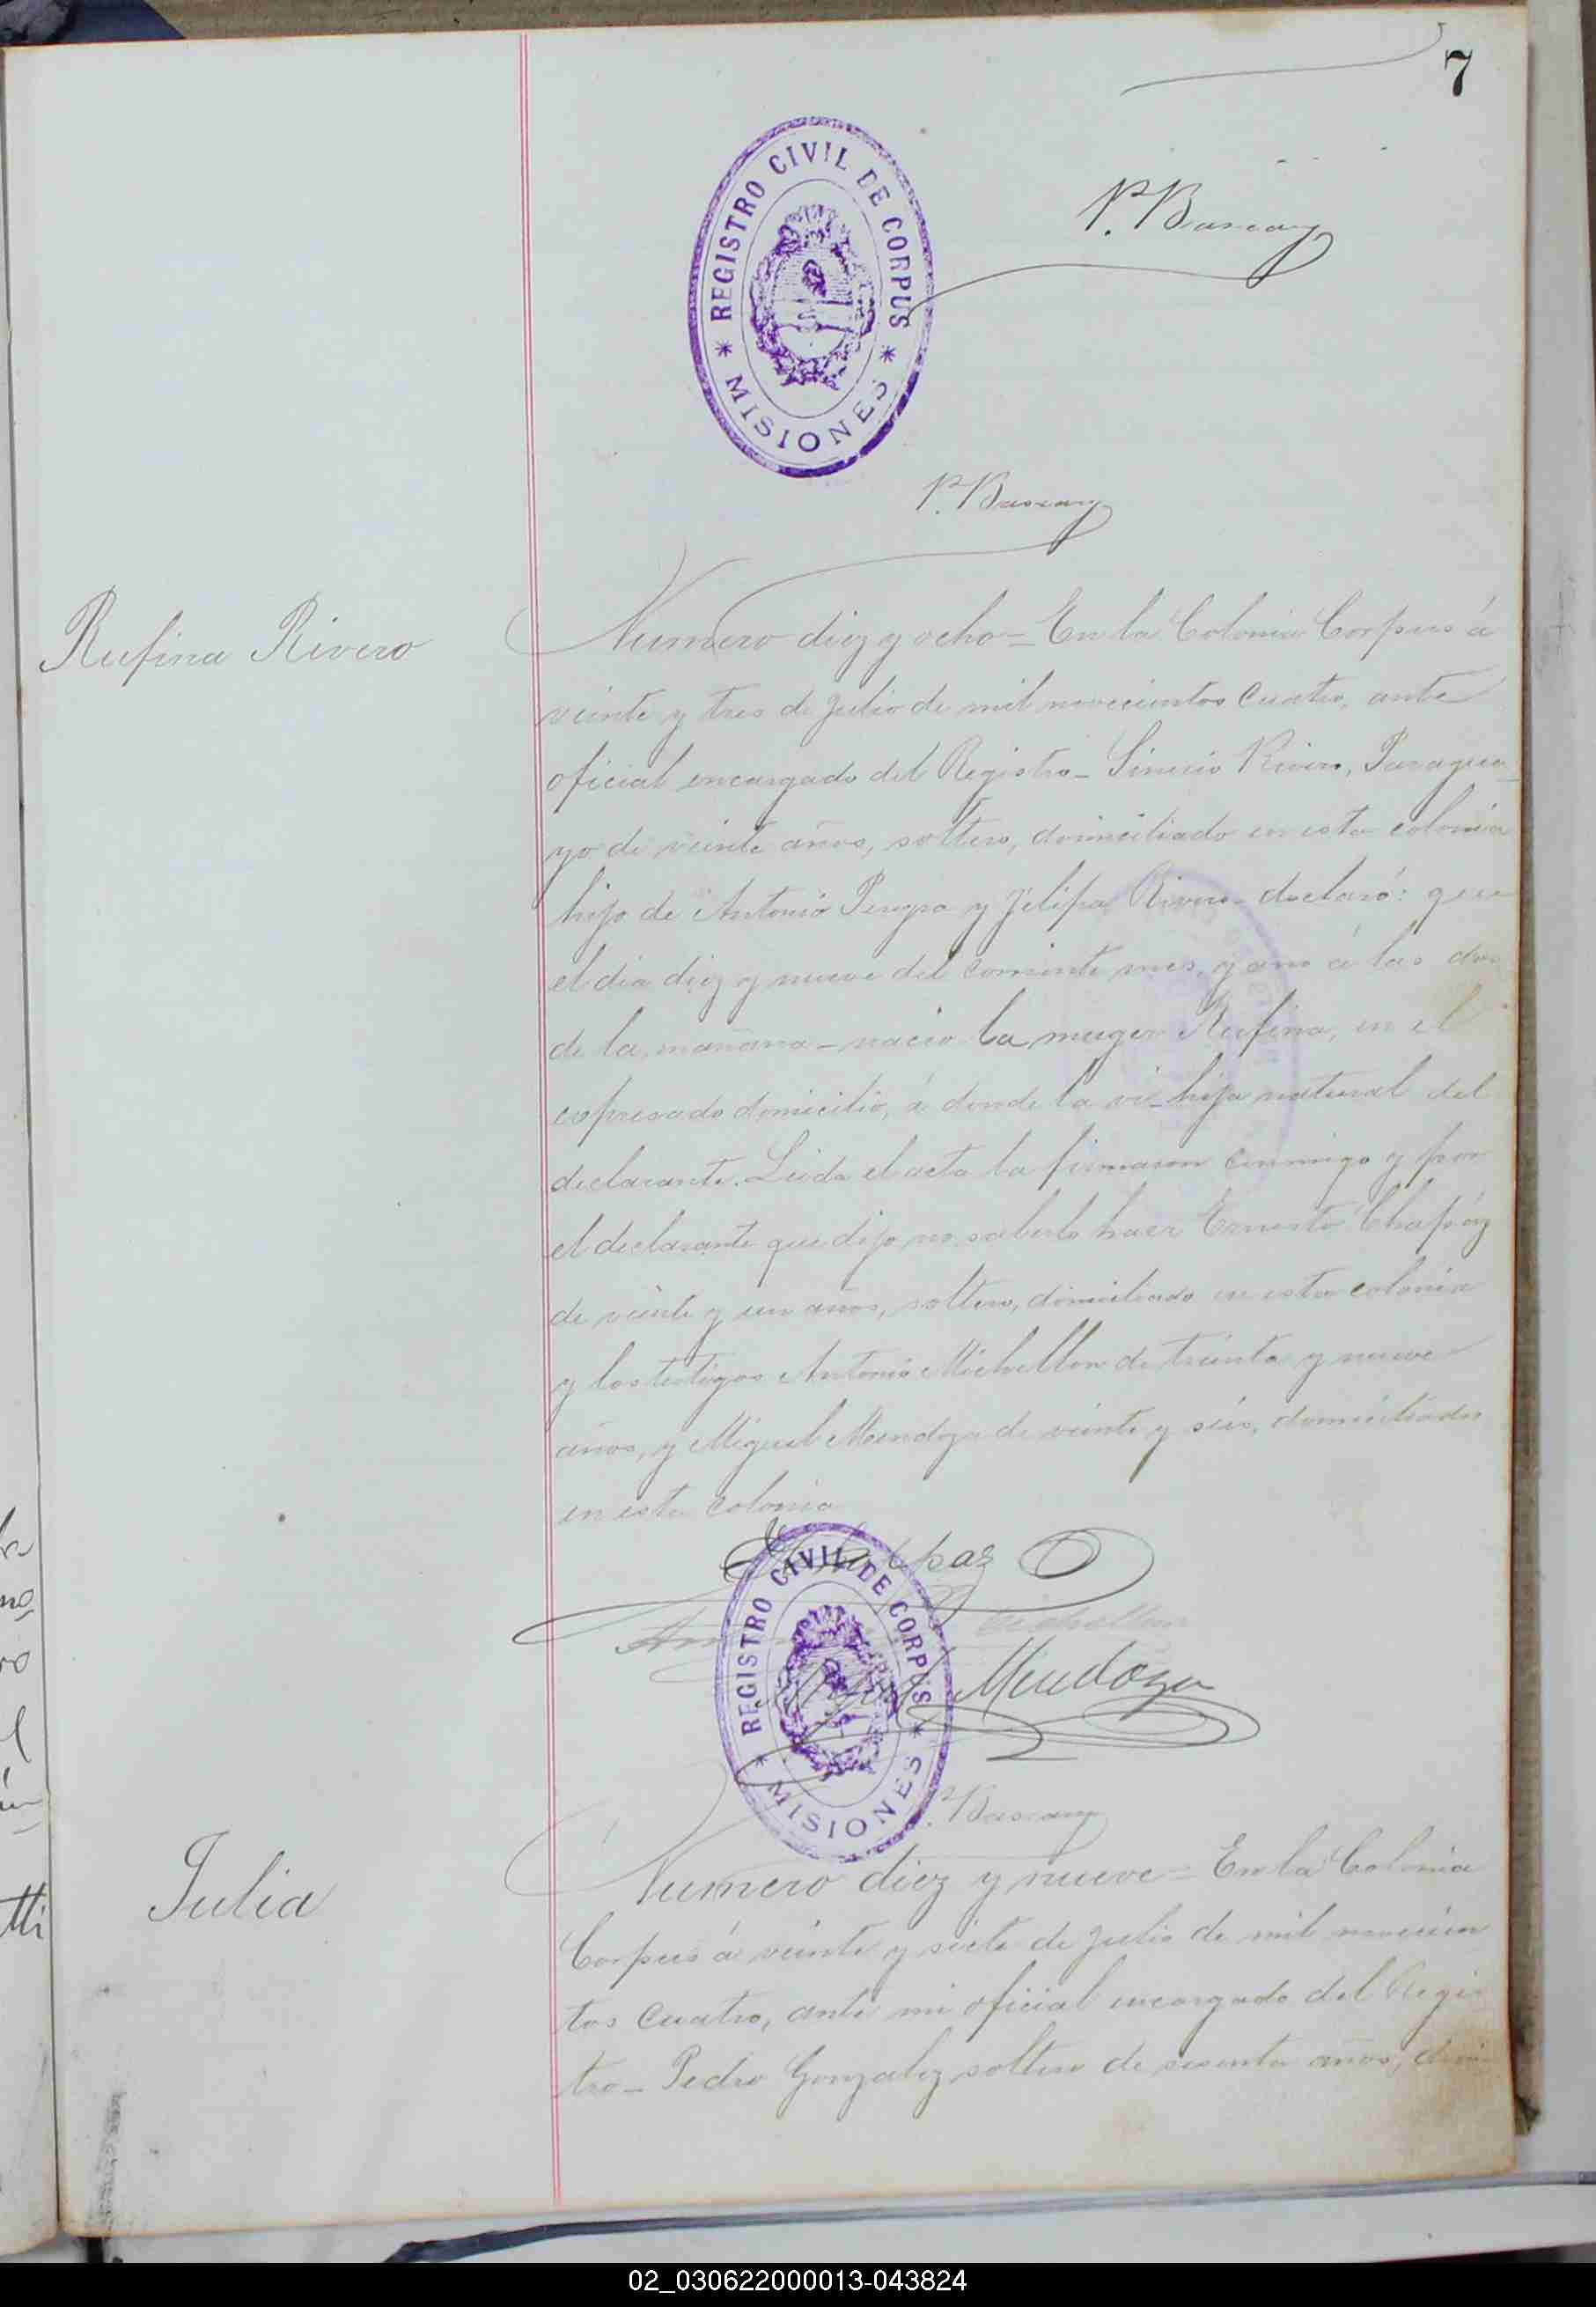 7
REGISTRO CIVIL DE CORPUS
* MISIONES *
P. Bascary
P. Bascary
Rufina Rivero
Numero diez y ocho = En la Colonia Corpus á
veinte y tres de Julio de mil novecientos cuatro, ante
oficial encargado del Registro - Rivero, Paragua-
yo de veinte años, soltero, domiciliado en esta colonia
hijo de Antonio y Felipa Rivero - declaró: que
el dia diez y nueve del corriente mes y año á las dos
de la mañana - nacio la muger Rufina, en el
expresado domicilio, á donde la vi - hija natural del
declarante. Leida el acta la firmaron conmigo y por
el declarante que dijo no saberlo hacer Ernesto Chapáz
de veinte y un años, soltero, domiciliado en esta colonia
y los testigos Antonio Michellon de treinta y nueve
años, y Miguel Mendoza de veinte y seis, domiciliados
en esta colonia
E. Chapaz
Michellon
REGISTRO CIVIL DE CORPUS
* MISIONES *
Miguel Mendoza
P. Bascary
Julia
Numero diez y nueve = En la Colonia
Corpus á veinte y siete de Julio de mil novecien
tos cuatro, ante mi oficial encargado del Regis
tro - Pedro Gonzalez soltero de sesenta años,
02_030622000013-043824